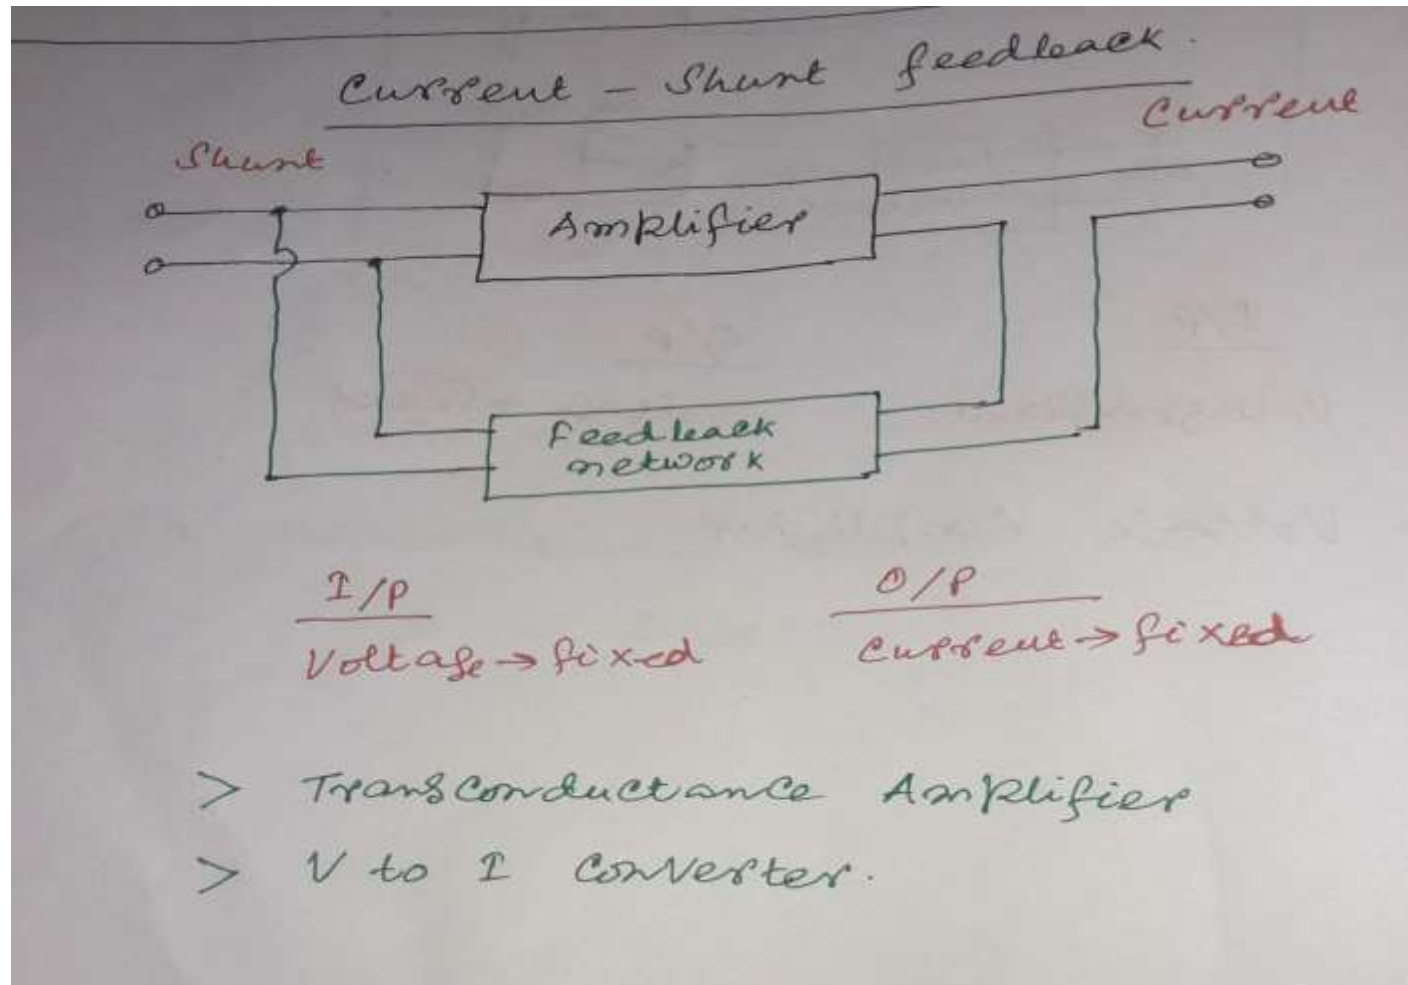 Current - Shunt feedback.
Shunt
Current
Amplifier
Feedback
network
I/P
O/P
Voltage → fixed
Current → fixed
> Transconductance Amplifier
> V to I Converter.